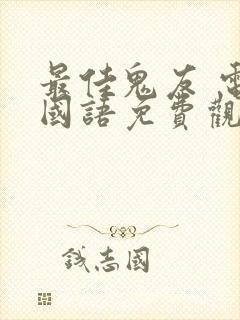 最佳鬼友 電
國語免費觀
錢志國